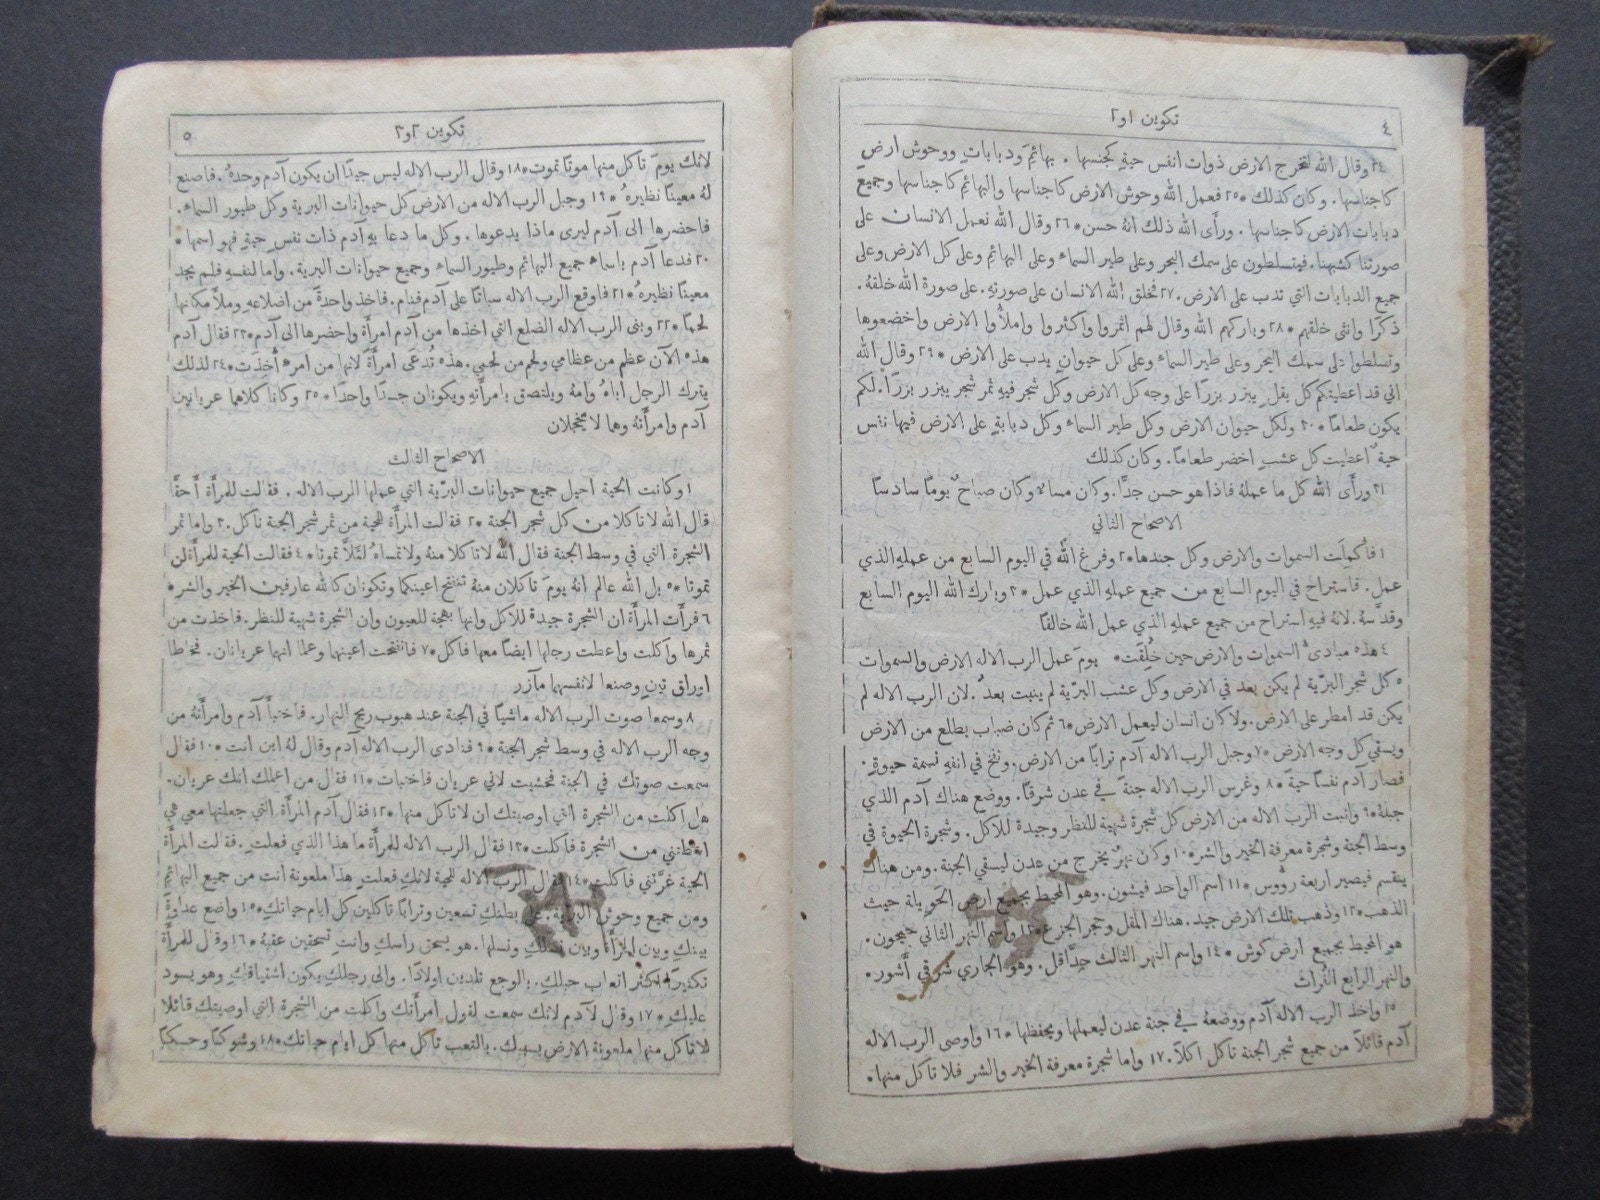 ٤
تكوين ١ و٢
٢٤ وقال الله لتخرج الارض ذوات انفس حية كجنسها . بهائمَ ودباباتٍ ووحوش ارضٍ
كاجناسها . وكان كذلك * ٢٥ فعمل الله وحوش الارض كاجناسها والبهائم كاجناسها وجميع
دبابات الارض كاجناسها . ورأى الله ذلك انهُ حسن * ٢٦ وقال الله نعمل الانسان على
صورتنا كشبهنا . فيتسلطون على سمك البحر وعلى طير السماء وعلى البهائم وعلى كل الارض وعلى
جميع الدبابات التي تدب على الارض . ٢٧ فخلق الله الانسان على صورتهِ . على صورة الله خلقهُ .
ذكرًا وانثى خلقهم * ٢٨ وباركهم الله وقال لهم اثمروا واكثروا واملأُوا الارض واخضعوها
وتسلطوا على سمك البحر وعلى طير السماء وعلى كل حيوانٍ يدب على الارض * ٢٩ وقال الله
اني قد اعطيتكم كل بقل يبزر بزرًا على وجه كل الارض وكل شجر فيهِ ثمر شجر يبزر بزرًا . لكم
يكون طعامًا * ٣٠ ولكل حيوان الارض وكل طير السماء وكل دبابةٍ على الارض فيها نفس
حية اعطيت كل عشب اخضر طعامًا . وكان كذلك
٣١ ورأَى الله كل ما عملهُ فاذا هو حسن جدًّا . وكان مساء وكان صباح يومًا سادسًا
الاصحاح الثاني
١ فأُكملَت السموات والارض وكل جندها * ٢ وفرغ الله في اليوم السابع من عملهِ الذي
عمل . فاستراح في اليوم السابع من جميع عملهِ الذي عمل * ٣ وبارك الله اليوم السابع
وقدَّسهُ . لانهُ فيهِ استراح من جميع عملهِ الذي عمل الله خالقًا
٤ هذه مبادئُ السموات والارض حين خُلِقَت * يومَ عمل الرب الاله الارض والسموات
٥ كل شجر البرّية لم يكن بعد في الارض وكل عشب البرّية لم ينبت بعدُ . لان الرب الاله لم
يكن قد امطر على الارض . ولا كان انسان ليعمل الارض * ٦ ثم كان ضباب يطلع من الارض
ويسقي كل وجه الارض * ٧ وجبل الرب الاله آدم ترابًا من الارض . ونفخ في انفهِ نسمة حيوةٍ .
فصار آدم نفسًا حيةً * ٨ وغرس الرب الاله جنةً في عدن شرقًا . ووضع هناك آدم الذي
جبلهُ * ٩ وانبت الرب الاله من الارض كل شجرة شهية للنظر وجيدة للاكل . وشجرة الحيوة في
وسط الجنة وشجرة معرفة الخير والشر * ١٠ وكان نهرٌ يخرج من عدن ليسقي الجنة . ومن هناك
ينقسم فيصير اربعة رؤوس * ١١ اسم الواحد فيشون . وهو المحيط بجميع ارض الحويلة حيث
الذهب * ١٢ وذهب تلك الارض جيد . هناك المقل وحجر الجزع * ١٣ واسم النهر الثاني جيحون .
هو المحيط بجميع ارض كوش * ١٤ واسم النهر الثالث حِدَّاقِل . وهو الجاري شرقي أَشور .
والنهر الرابع الفُرات
١٥ واخذ الرب الاله آدم ووضعهُ في جنة عدن ليعملها ويحفظها * ١٦ واوصى الرب الاله
آدم قائلاً من جميع شجر الجنة تاكل اكلًا . ١٧ واما شجرة معرفة الخير والشر فلا تاكل منها .
تكوين ٢ و٣
٥
لانك يومَ تاكل منها موتًا تموت * ١٨ وقال الرب الاله ليس جيدًا ان يكون آدم وحدهُ . فاصنع
لهُ معينًا نظيرهُ * ١٩ وجبل الرب الاله من الارض كل حيوانات البرية وكل طيور السماء .
فاحضرها الى آدم ليرى ماذا يدعوها . وكل ما دعا بهِ آدم ذات نفس حيةٍ فهو اسمها *
٢٠ فدعا آدم باسماء جميع البهائم وطيور السماء وجميع حيوانات البرية . واما لنفسهِ فلم يجد
معينًا نظيرهُ * ٢١ فاوقع الرب الاله سباتًا على آدم فنام . فاخذ واحدةً من اضلاعهِ وملأَ مكانها
لحمًا * ٢٢ وبنى الرب الاله الضلع التي اخذها من آدم امرأَة واحضرها الى آدم * ٢٣ فقال آدم
هذه الآن عظم من عظامي ولحم من لحمي . هذه تُدعَى امرأَةً لانها من امرءٍ أُخذت * ٢٤ لذلك
يترك الرجل اباهُ وامهُ ويلتصق بامرأَتهِ ويكونان جسدًا واحدًا * ٢٥ وكانا كلاهما عريانين
آدم وامرأَتهُ وهما لا يخجلان
الاصحاح الثالث
١ وكانت الحية احيل جميع حيوانات البرّية التي عملها الرب الاله . فقالت للمرأَة أَحقًّا
قال الله لا تاكلا من كل شجر الجنة * ٢ فقالت المرأَة للحية من ثمر شجر الجنة ناكل . ٣ واما ثمر
الشجرة التي في وسط الجنة فقال الله لا تاكلا منهُ ولا تمساهُ لئلاَّ تموتا * ٤ فقالت الحية للمرأَة لن
تموتا * ٥ بل الله عالم انهُ يومَ تاكلان منهُ تنفتح اعينكما وتكونان كالله عارفين الخير والشر *
٦ فرأَت المرأَة ان الشجرة جيدة للاكل وانها بهجة للعيون وان الشجرة شهية للنظر . فاخذت من
ثمرها واكلت واعطت رجلها ايضًا معها فاكل * ٧ فانفتحت اعينهما وعلما انهما عريانان . فخاطا
اوراق تينٍ وصنعا لانفسهما مآزر
٨ وسمعا صوت الرب الاله ماشيًا في الجنة عند هبوب ريح النهار . فاختبأَ آدم وامرأَتهُ من
وجه الرب الاله في وسط شجر الجنة * ٩ فنادى الرب الاله آدم وقال لهُ اين انت * ١٠ فقال
سمعت صوتك في الجنة فخشيت لاني عريان فاختبات * ١١ فقال من اعلمك انك عريان .
هل اكلت من الشجرة التي اوصيتك ان لا تاكل منها * ١٢ فقال آدم المرأَة التي جعلتها معي هي
اعطتني من الشجرة فاكلت * ١٣ فقال الرب الاله للمرأَة ما هذا الذي فعلتِ . فقالت المرأَة
الحية غرَّتني فاكلت * ١٤ فقال الرب الاله للحية لانكِ فعلتِ هذا ملعونة انت من جميع البهائم
ومن جميع وحوش البرية . على بطنكِ تسعين وترابًا تاكلين كل ايام حياتكِ * ١٥ واضع عداوةً
بينكِ وبين المرأَة وبين نسلكِ ونسلها . هو يسحق راسكِ وانتِ تسحقين عقبهُ * ١٦ وقال للمرأَة
تكثيرًا اكثر اتعاب حبلكِ . بالوجع تلدين اولادًا . والى رجلكِ يكون اشتياقكِ وهو يسود
عليكِ * ١٧ وقال لآدم لانك سمعت لقول امرأَتك واكلت من الشجرة التي اوصيتك قائلًا
لا تاكل منها ملعونة الارض بسببك . بالتعب تاكل منها كل ايام حياتك * ١٨ وشوكًا وحسكًا